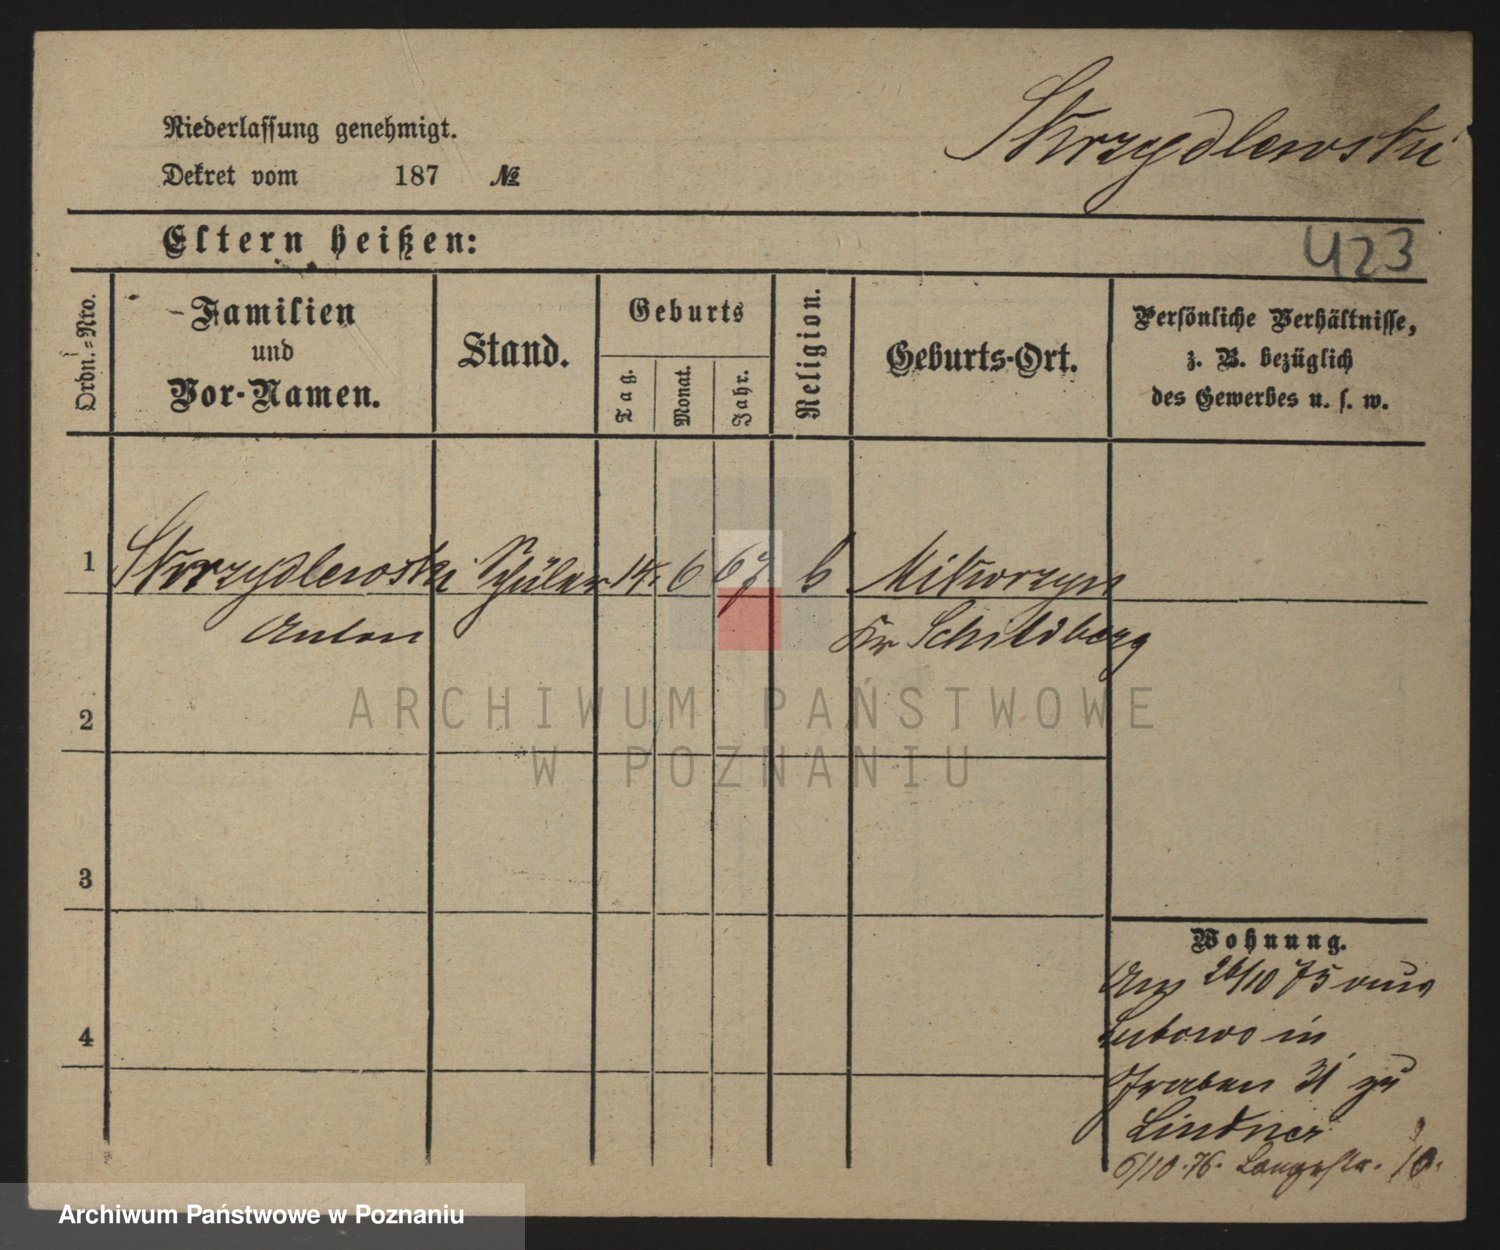 Niederlassung genehmigt.
Skrzydlewski
Dekret vom 187 №
Eltern heißen:
423
Ordn.=Nro.
Familien
und
Vor-Namen.
Stand.
Geburts
Tag.
Monat.
Jahr.
Religion.
Geburts-Ort.
Persönliche Verhältnisse,
z. B. bezüglich
des Gewerbes u. s. w.
1 Skrzydlewski Schüler 14. 6 67 k Mikorzyn
Anton Kr Schildberg
2
ARCHIWUM PAŃSTWOWE
W POZNANIU
3
4
Wohnung.
Anz 26/10 75 aus
Lubowo in
Graben 31 zu
Lindner
6/10.76. Langestr. 10.
Archiwum Państwowe w Poznaniu